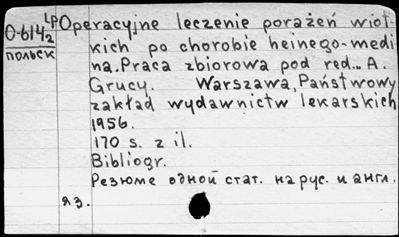 O-614₂ LP Operacyjne leczenie porażeń wiot-
польск kich po chorobie heinego-medi
na. Praca zbiorowa pod red... A.
Grucy. Warszawa, Państwowy
zakład wydawnictw lekarskich
1956.
170 s. z il.
Bibliogr.
Резюме одной стат. на рус. и англ.
яз.